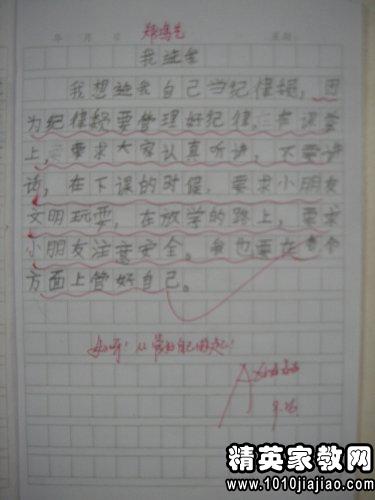 年 月 日 星期
我选我
我想选我自己当纪律班,因
为纪律班要管理好纪律,在课堂
上,要求大家认真听讲,不要讲
话,在下课的时候,要求小朋友
文明玩耍,在放学的路上,要求
小朋友注意安全。我也要在各个
方面上管好自己。
好呀!从管好自己做起!
精英家教网
www.1010jiajiao.com